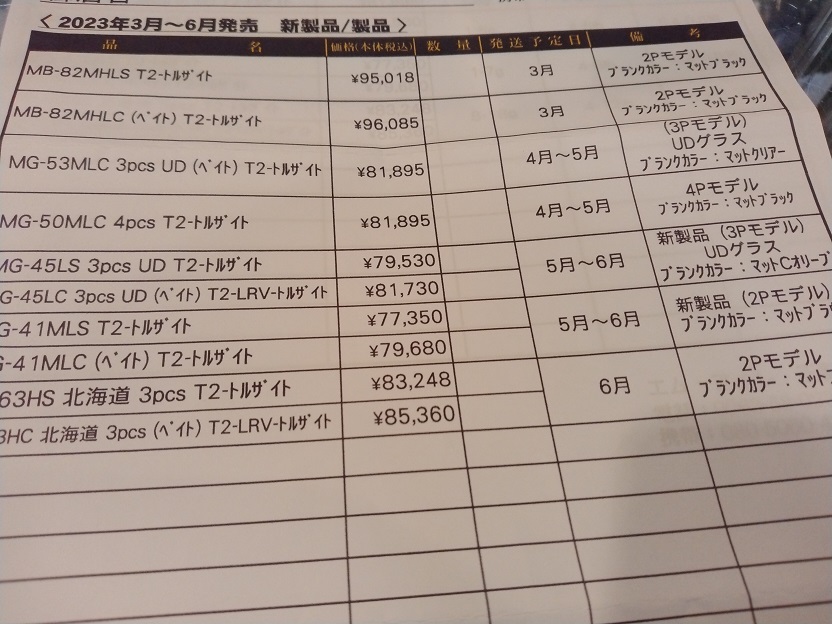 < 2023年3月～6月発売 新製品/製品 >
品 名 価格(本体税込) 数 量 発送予定日 備 考
MB-82MHLS T2-ﾄﾙｻﾞｲﾄ ¥95,018 3月 2Pモデル
ブランクカラー：マットブラック
MB-82MHLC (ﾍﾞｲﾄ) T2-ﾄﾙｻﾞｲﾄ ¥96,085 3月 2Pモデル
ブランクカラー：マットブラック
MG-53MLC 3pcs UD (ﾍﾞｲﾄ) T2-ﾄﾙｻﾞｲﾄ ¥81,895 4月～5月 (3Pモデル)
UDグラス
ブランクカラー：マットクリアー
MG-50MLC 4pcs T2-ﾄﾙｻﾞｲﾄ ¥81,895 4月～5月 4Pモデル
ブランクカラー：マットブラック
MG-45LS 3pcs UD T2-ﾄﾙｻﾞｲﾄ ¥79,530 5月～6月 新製品 (3Pモデル)
UDグラス
ブランクカラー：マットCオリーブ
G-45LC 3pcs UD (ﾍﾞｲﾄ) T2-LRV-ﾄﾙｻﾞｲﾄ ¥81,730
G-41MLS T2-ﾄﾙｻﾞｲﾄ ¥77,350 5月～6月 新製品 (2Pモデル)
ブランクカラー：マットブラ
G-41MLC (ﾍﾞｲﾄ) T2-ﾄﾙｻﾞｲﾄ ¥79,680
63HS 北海道 3pcs T2-ﾄﾙｻﾞｲﾄ ¥83,248 6月 2Pモデル
ブランクカラー：マット
3HC 北海道 3pcs (ﾍﾞｲﾄ) T2-LRV-ﾄﾙｻﾞｲﾄ ¥85,360